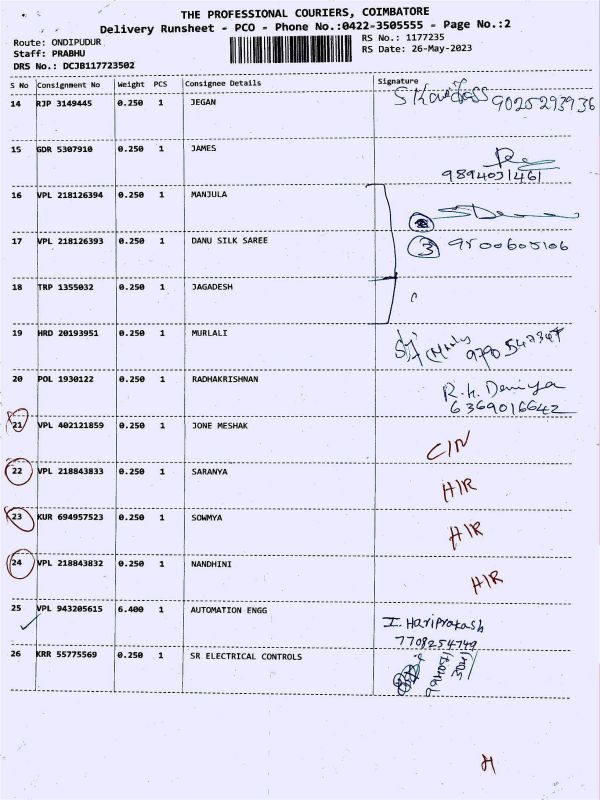 THE PROFESSIONAL COURIERS, COIMBATORE
Delivery Runsheet - PCO - Phone No.:0422-3505555 - Page No.:2
Route: ONDIPUDUR RS No.: 1177235
Staff: PRABHU RS Date: 26-May-2023
DRS No.: DCJB117723502
S No Consignment No Weight PCS Consignee Details Signature
14 RJP 3149445 0.250 1 JEGAN 9025293936
15 GDR 5307910 0.250 1 JAMES
9894031461
16 VPL 218126394 0.250 1 MANJULA
17 VPL 218126393 0.250 1 DANU SILK SAREE 3 9500605106
18 TRP 1355032 0.250 1 JAGADESH
19 HRD 20193951 0.250 1 MURLALI
20 POL 1930122 0.250 1 RADHAKRISHNAN R.H. Deniya
6369016642
21 VPL 402121859 0.250 1 JONE MESHAK CIN
22 VPL 218843833 0.250 1 SARANYA HIR
23 KUR 694957523 0.250 1 SOWMYA HIR
24 VPL 218843832 0.250 1 NANDHINI HIR
25 VPL 943205615 6.400 1 AUTOMATION ENGG I. Hariprakash
7708254749
26 KRR 55775569 0.250 1 SR ELECTRICAL CONTROLS